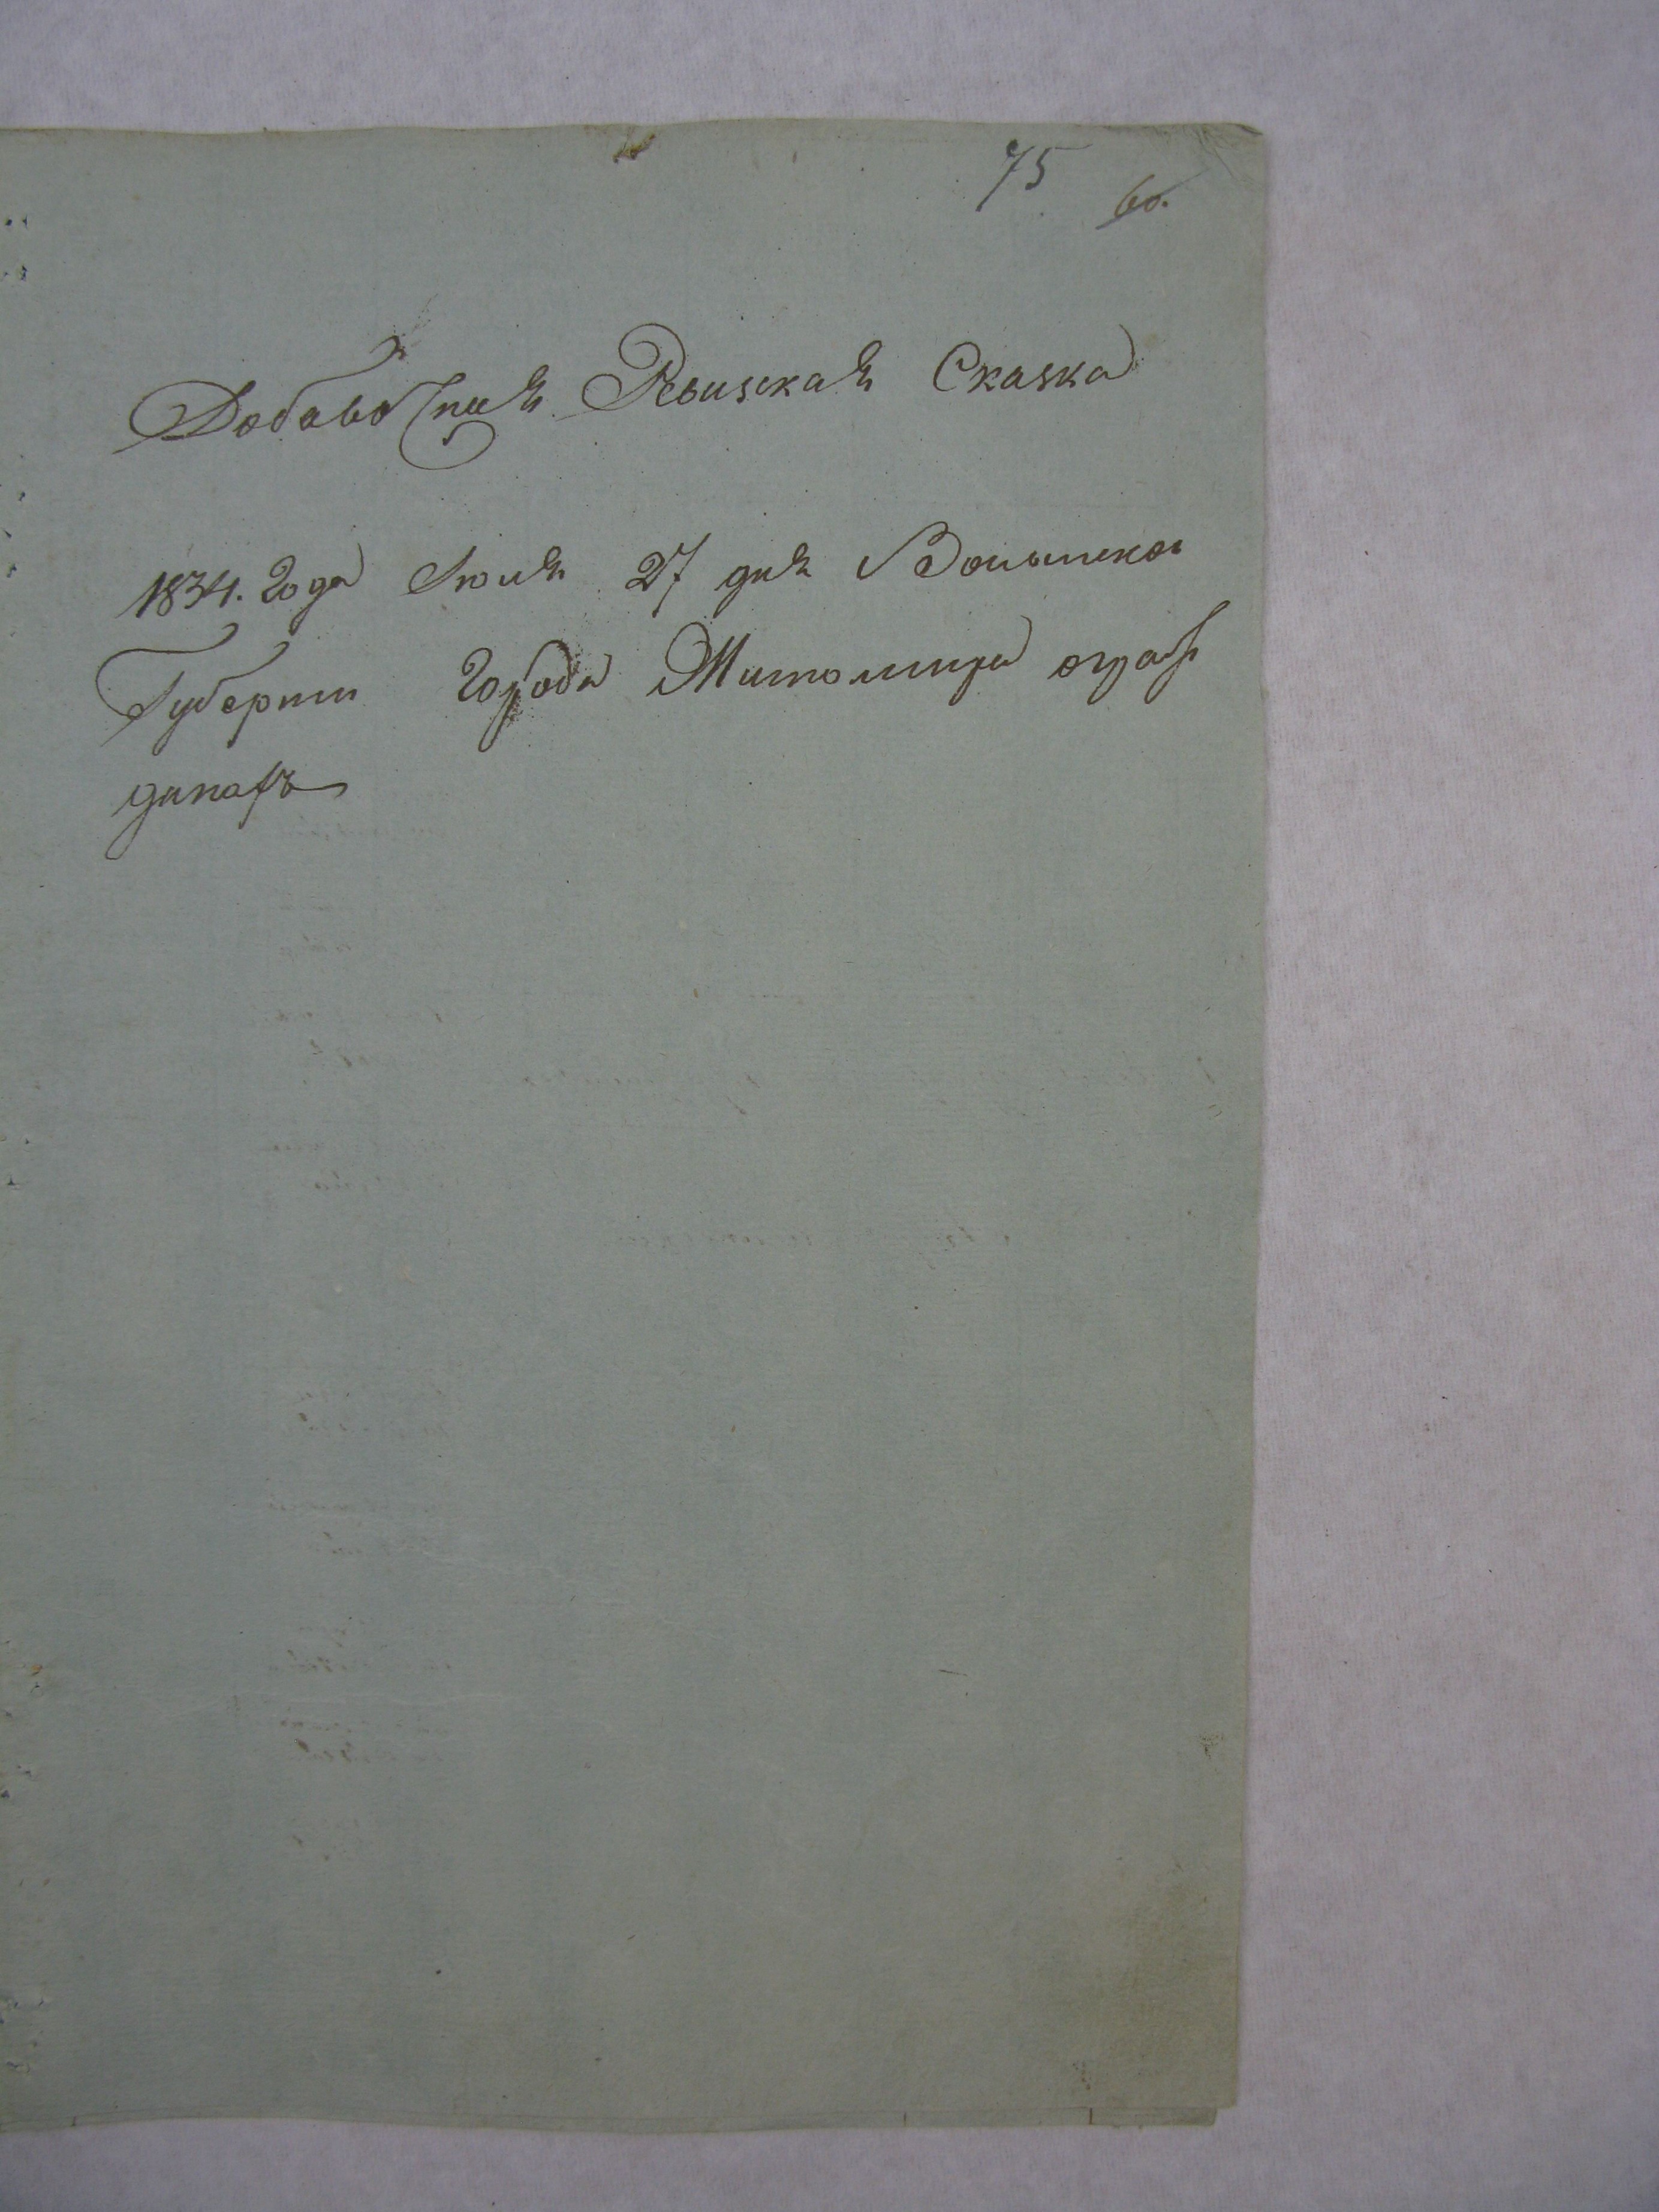 75 60.
Добавочная Ревизская Сказка
1834. Года Июля 27 дня Волынской
Губернии Города Житомира о граж
данахъ